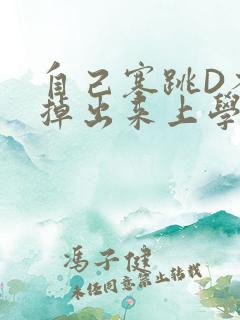 自己塞跳D不
掉出来上學
馮子健
未经同意禁止转载